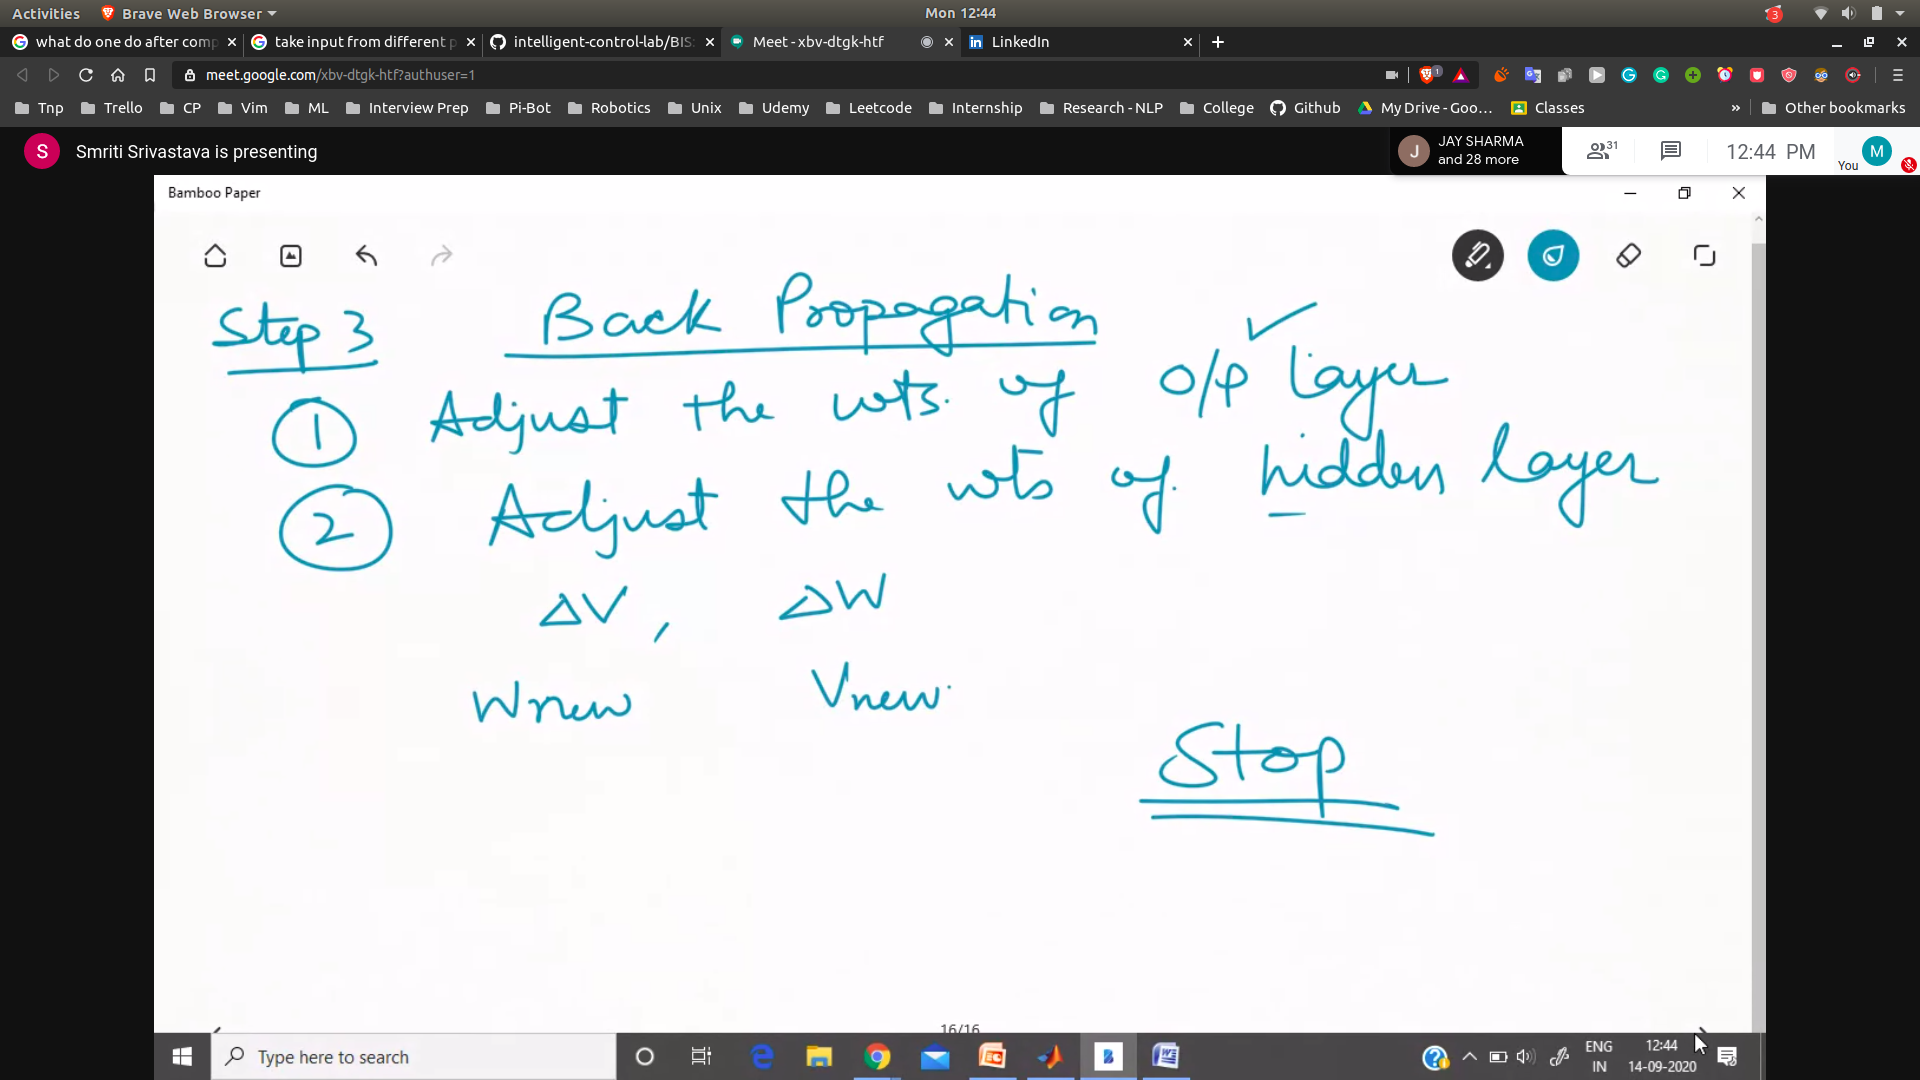 Activities Brave Web Browser Mon 12:44 3
what do one do after comp take input from different p intelligent-control-lab/BIS Meet - xbv-dtgk-htf LinkedIn
meet.google.com/xbv-dtgk-htf?authuser=1 1
Tnp Trello CP Vim ML Interview Prep Pi-Bot Robotics Unix Udemy Leetcode Internship Research - NLP College Github My Drive - Goo... Classes » Other bookmarks
S Smriti Srivastava is presenting J JAY SHARMA and 28 more 31 12:44 PM You M
Bamboo Paper
Step 3 Back Propagation
1 Adjust the wts. of o/p layer
2 Adjust the wts of hidden layer
ΔV, ΔW
Wnew Vnew
Stop
16/16
Type here to search ENG IN 12:44 14-09-2020